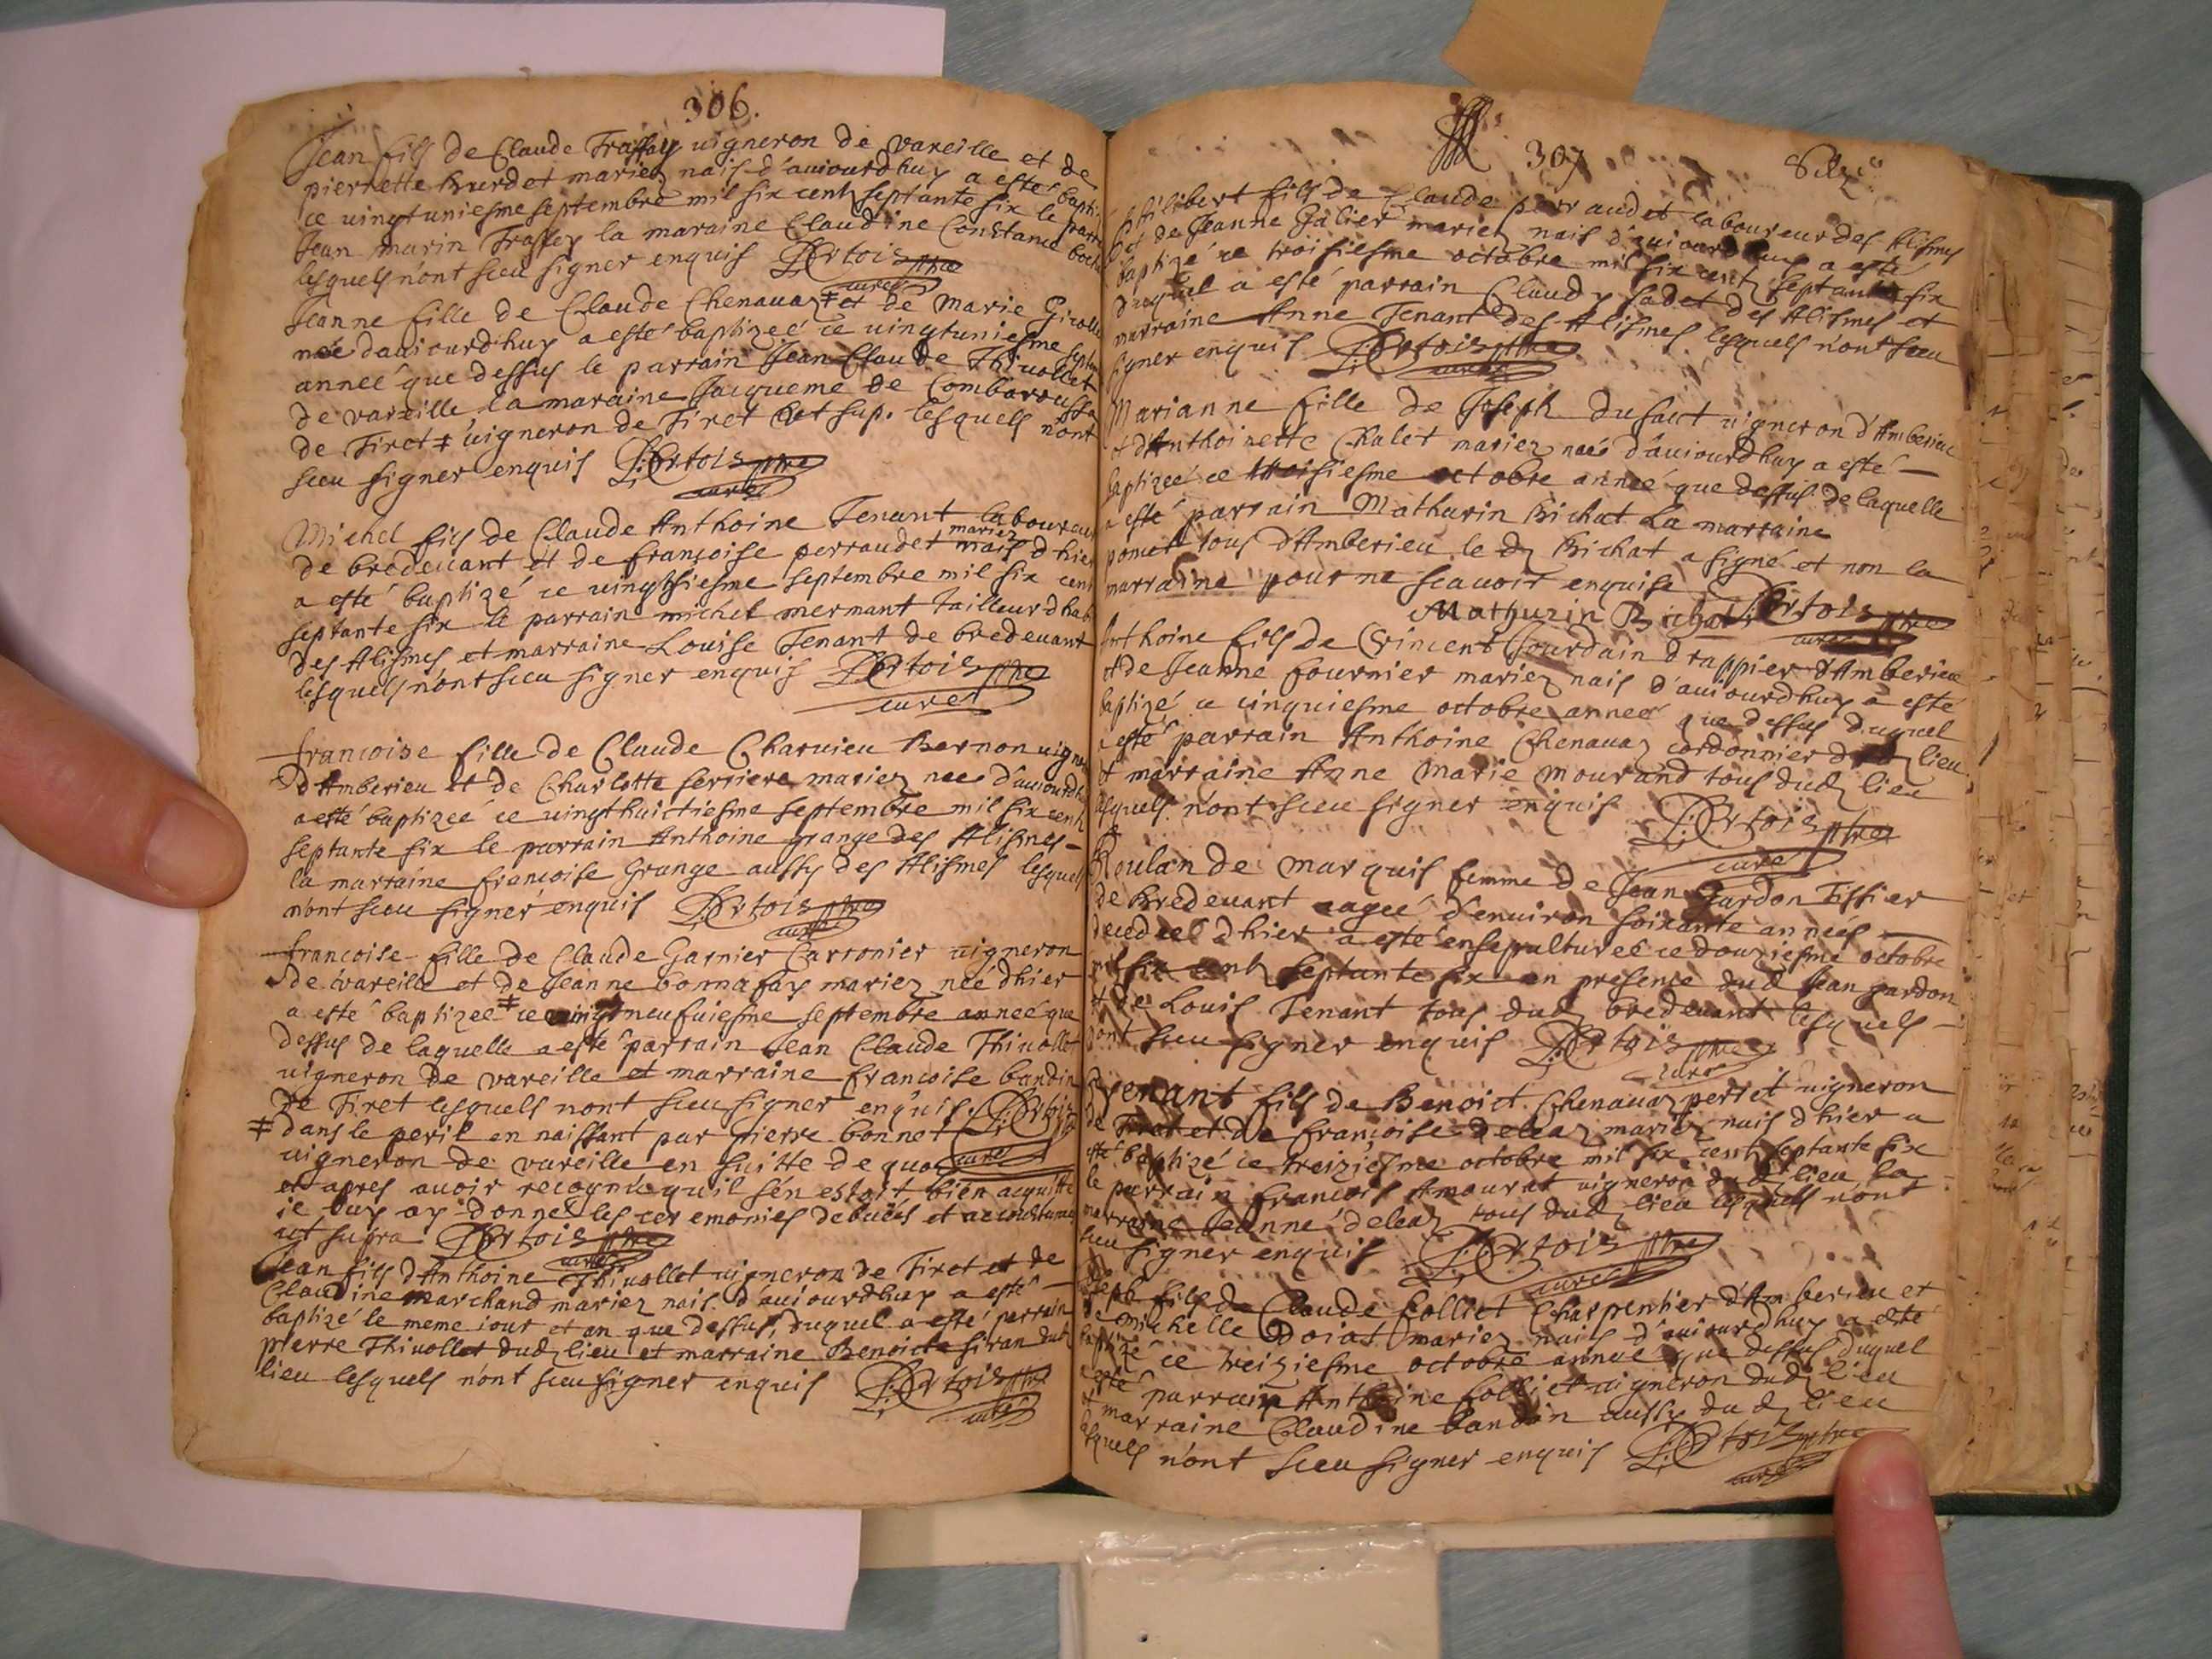 306.
Jean fils de Claude Traffay vigneron de vareille et de
pierrette Burdet mariez nais d'auiourdhuy a esté bapti
ce uingtuniesme septembre mil six cents septante six le parr
Jean marin Traffey la maraine Claudine Constance
lesquels n'ont sceu signer enquis D:Ortois ptre
curé
Jeanne fille de Claude Chenauaz ǂ et de marie Girolle
née dauiourdhuy a esté baptizeé ce uingtuniesme septem
anneé que dessus le parrain Jean Claude Thiuollet
de vareille la maraine Jacqueme de Combarousse
de Tiret ǂ uigneron de Tiret ut sup. lesquels n'ont
sceu signer enquis D:Ortois ptre
curé
Michel fils de Claude Anthoine Tenant laboureur
de bredeuant et de francoise perraudet mariez nais d'hier
a esté baptizé ce uingtsiesme septembre mil six cent
septante six le parrain michel mermant tailleur dhab
des Alismes et marraine Louise Tenant de bredeuant
lesquels n'ont sceu signer enquis D:Ortois ptre
curé
francoise fille de Claude Charuieu Bernon uigne
d'Amberieu et de Charlotte ferriere mariez nee d'auiourdh
a esté baptizeé ce uingthuictiesme septembre mil six cent
septante six le parrain Anthoine grange des Alismes
la marraine francoise Grange aussy des Alismes lesquels
n'ont sceu signer enquis D:Ortois ptre
curé
francoise fille de Claude Garnier Carronier uigneron
de vareille et de Jeanne bonnafay mariez neé dhier
a esté baptizeé ǂ ce uingtneufuiesme septembre anneé que
dessus de laquelle a esté parrain Jean Claude Thiuollet
uigneron de vareille et marraine francoise bandin
de Tiret lesquels nont sceu signer enquis D:Ortois
ǂ dans le peril en naissant par pierre bonnet
uigneron de vareille en suitte de quoy curé
et apres auoir recognu qu'il s'en estoit bien acquitté
ie luy ay donneé les ceremonies et
ut supra D:Ortois ptre
curé
Jean fils d'Anthoine Thiuollet uigneron de Tiret et de
Claudine marchand mariez nais d'auiourdhuy a esté
baptizé le meme iour et an que dessus, duquel a esté parrain
pierre Thiuollet dudz lieu et marraine Benoicte siran dudz
lieu lesquels n'ont sceu signer enquis D:Ortois ptre
curé
307
philibert fils de Claude perraudet laboureur des Alismes
et de Jeanne Galier mariez nais d'auiourdhuy a esté
baptizé ce troisiesme octobre mil six cents septante six
duquel a esté parrain Claudy Cadet des Alismes et
marraine Anne Tenant des Alismes lesquels n'ont sceu
signer enquis D:Ortois ptre
curé
Marianne fille de Joseph dufaut uigneron d'Amberieu
et d'Anthoinette Chalet mariez neé d'auiourdhuy a esté
baptizeé ce troisiesme octobre anneé que dessus de laquelle
a esté parrain Mathurin Bichat La marraine
pomet tous d'Amberieu le dz Bichat a signé et non la
marraine pour ne scauoir enquise
Mathurin Bichat D:Ortois ptre
curé
Anthoine fils de Vincent Jourdain drappier d'Amberieu
et de Jeanne fournier mariez nais d'auiourdhuy a esté
baptizé ce cinquiesme octobre anneé que dessus duquel
a esté parrain Anthoine Chenauaz cordonnier dudz lieu
et marraine Anne Marie mourand tous dudz lieu
lesquels n'ont sceu signer enquis D:Ortois ptre
curé
Roulande marquis femme de Jean Gardon Tissier
de Bredeuant aageé d'enuiron soixante anneés
decedeé d'hier a esté ensepultureé ce douziesme octobre
mil six cents septante six en presence dud Jean gardon
et de Louis Tenant tous dudz bredeuant lesquels
nont sceu signer enquis D:Ortois ptre
curé
Trenant fils de Benoict Chenauaz perret uigneron
de Tiret et de francoise deleaz mariez nais d'hier a
esté baptizé ce treiziesme octobre mil six cents septante six
le parrain francois Amourat uigneron dudz lieu la
marraine Jeanne deleaz tous dudz lieu lesquels n'ont
sceu signer enquis D:Ortois ptre
curé
Joseph fils de Claude folliet Charpentier d'Amberieu et
de michelle Doiat mariez nais d'auiourdhuy a esté
baptizé ce treiziesme octobre anneé que dessus duquel
a esté parrain Anthoine folliet uigneron dudz lieu
et marraine Claudine bandin aussy dudz lieu
lesquels n'ont sceu signer enquis D:Ortois ptre
curé